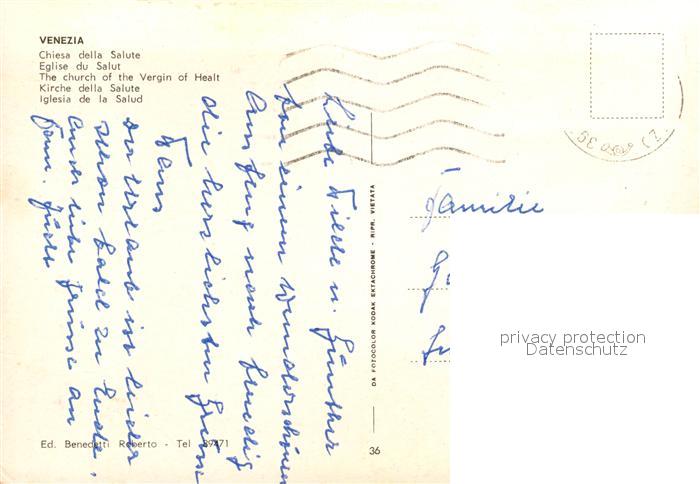 VENEZIA
Chiesa della Salute
Eglise du Salut
The church of the Vergin of Healt
Kirche della Salute
Iglesia de la Salud
Liebe Tilde u. Günther
Von einem wunderschönen
Ausflug nach Venedig
die herzlichsten Grüsse
Hans
Der Urlaub ist leider
schon bald zu Ende.
Auch liebe Grüsse an
Fam.
Familie
DA FOTOCOLOR KODAK EKTACHROME - RIPR. VIETATA
privacy protection
Datenschutz
Ed. Benedetti Roberto - Tel 89471
36